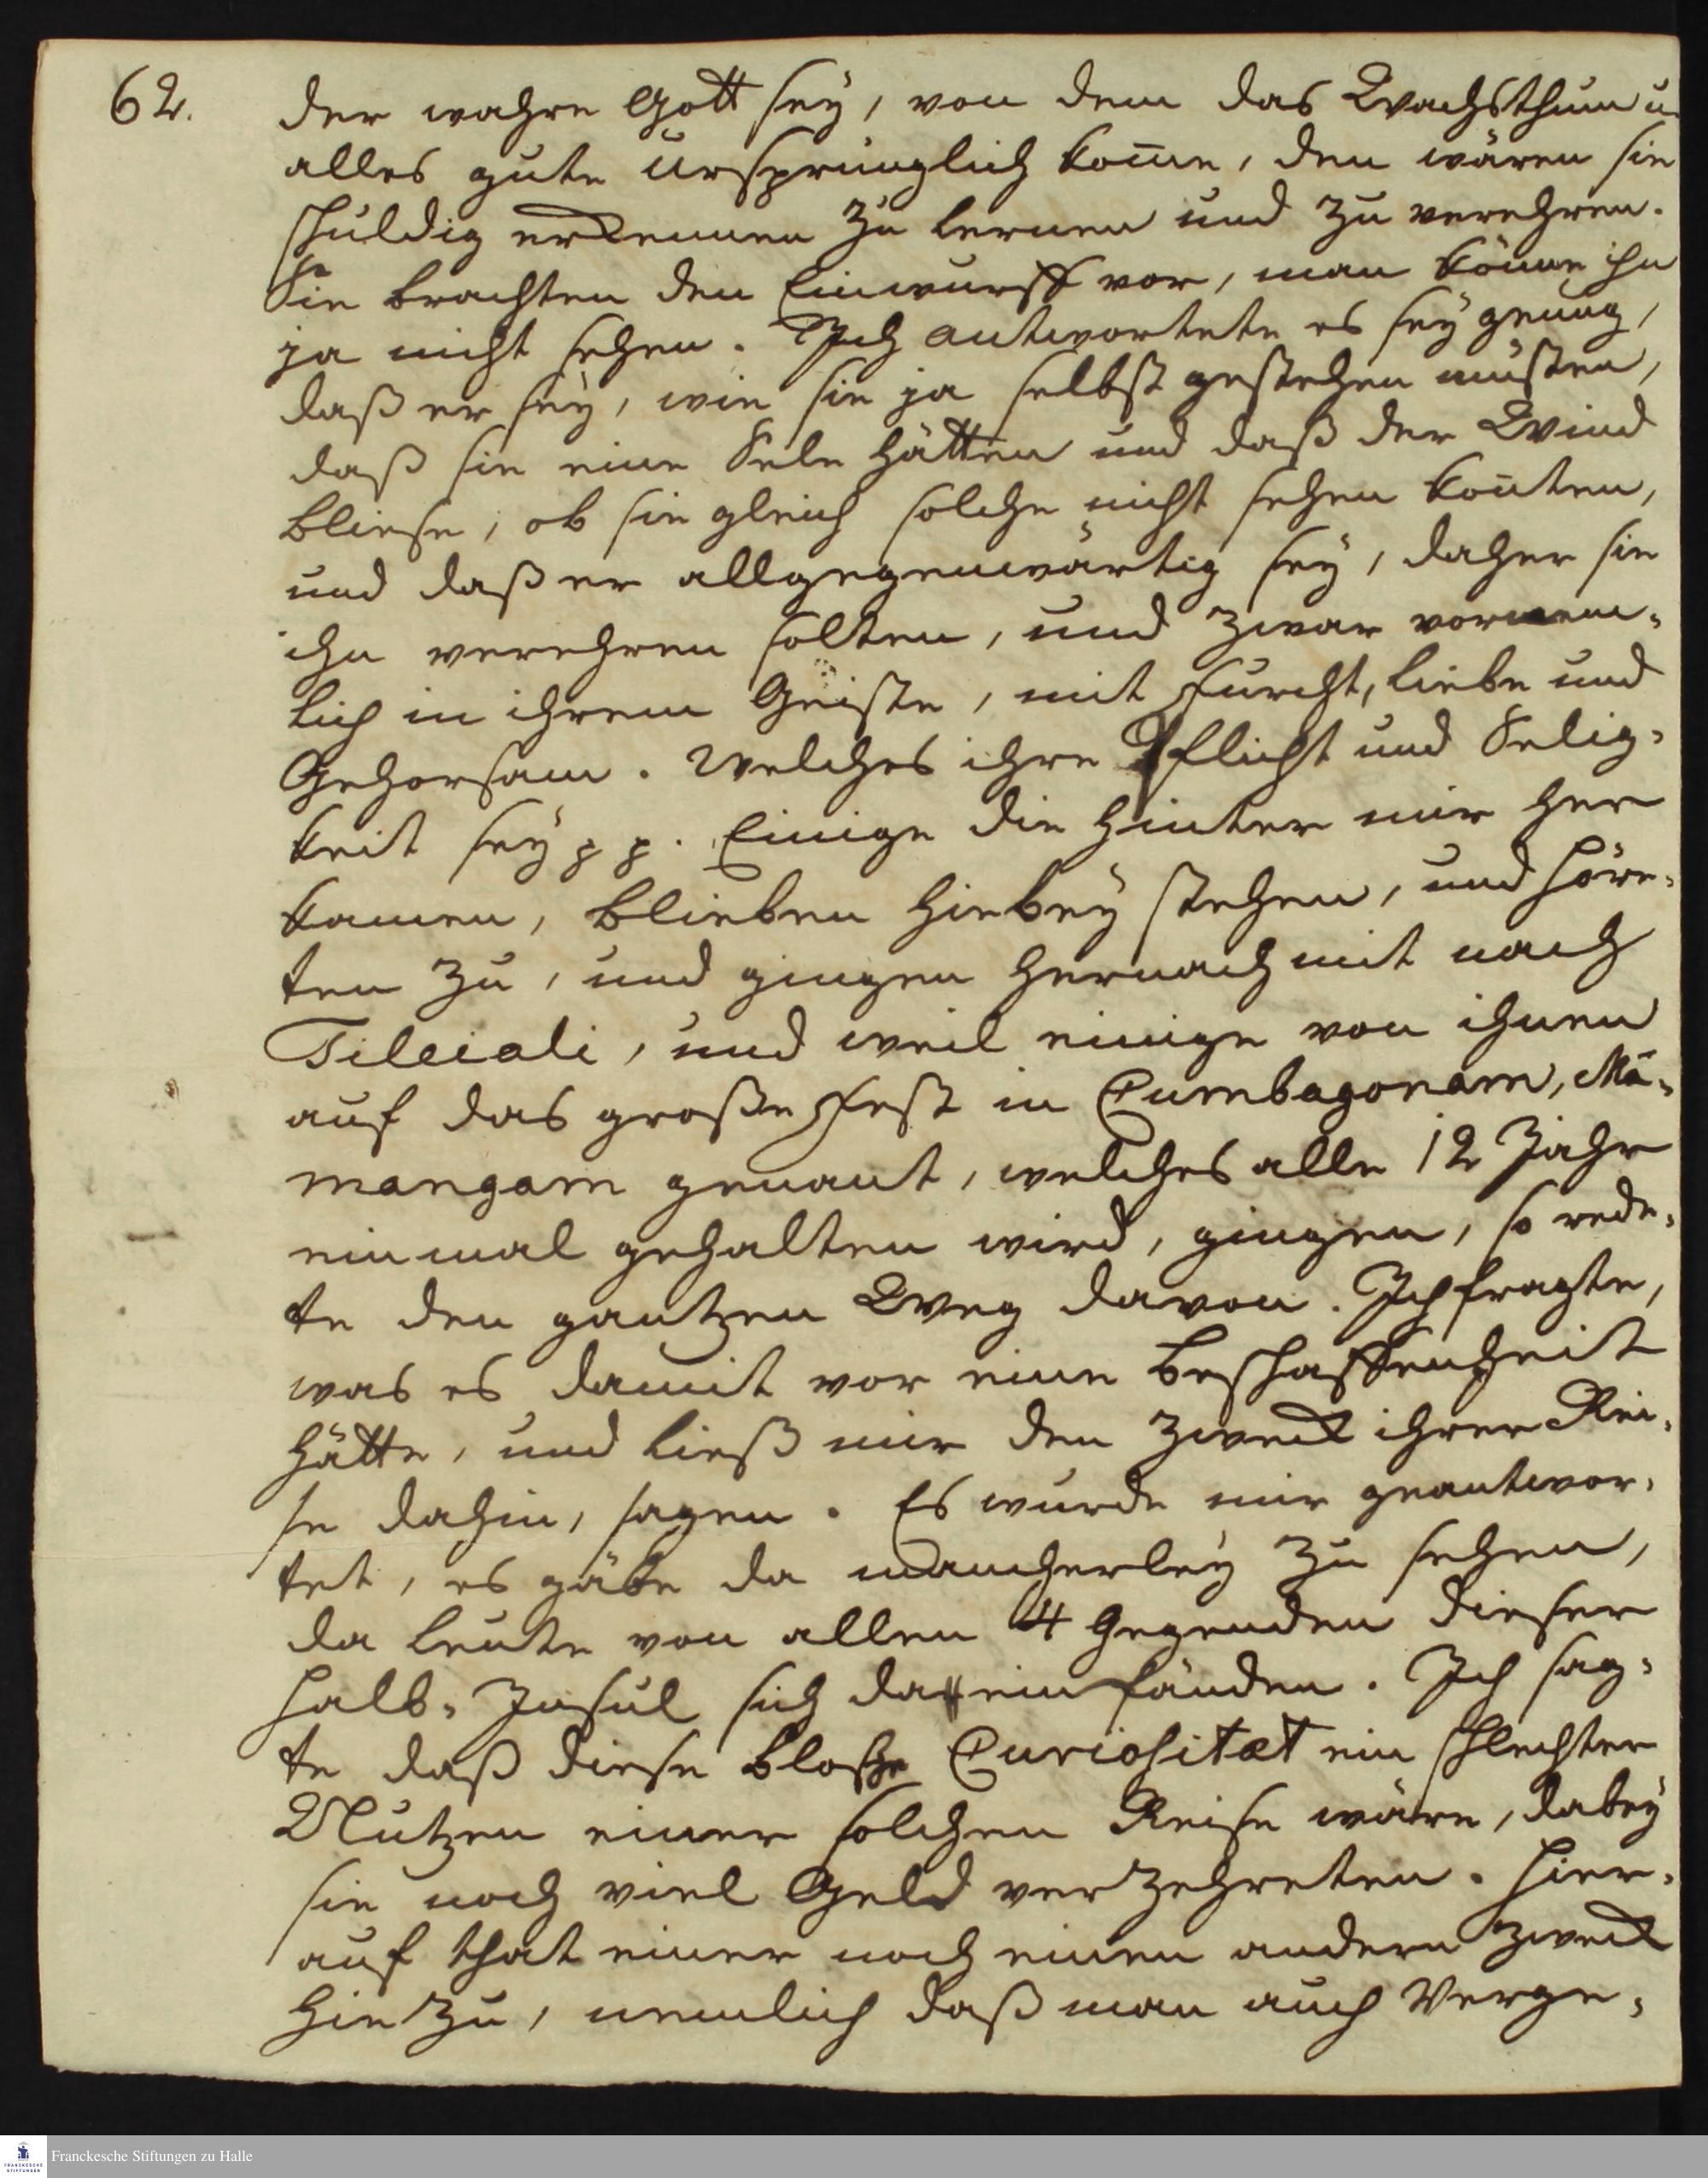 62.
der wahre Gott sey, von dem das Wachsthum u.
alles gute ursprünglich kom̄e, den wären sie
schuldig erkennen zu lernen und zu verehren.
Sie brachten den Einwurff vor, man könne ihn
ja nicht sehen. Ich antwortete es sey genug,
daß er sey, wie sie ja selbst gestehen müsten,
daß sie eine Sele hätten und daß der Wind
bliese, ob sie gleich solche nicht sehen kon̄ten,
und daß er allgegenwärtig sey, daher sie
ihn verehren solten, und zwar vornem-
lich in ihrem Geiste, mit Furcht, Liebe und
Gehorsam. Welches ihre Pflicht und Selig-
keit sey pp. Einige die hinter mir her
kamen, blieben hiebey stehen, und höre-
ten zu, und gingen hernach mit nach
Tileiali, und weil einige von ihnen
auf das große Fest in Cumbagonam, Mâ-
mangam genant, welches alle 12 Jahr
einmal gehalten wird, gingen, so rede-
te den gantzen Weg davon. Ich fragte,
was es damit vor eine Beschaffenheit
hätte, und ließ mir den Zweck ihrer Rei-
se dahin, sagen. Es wurde mir geantwor-
tet, es gäbe da mancherley zu sehen,
da Leute von allen 4 Gegenden dieser
Halb-Insul sich da einfänden. Ich sag-
te daß diese bloße Curiositæt ein schlechter
Nutzen einer solchen Reise wäre, dabey
sie noch viel Geld verzehreten. Hier-
auf that einer noch einen andern Zweck
hinzu, nemlich daß man auch Verge-
Franckesche Stiftungen zu Halle
FRANCKESCHE
STIFTUNGEN